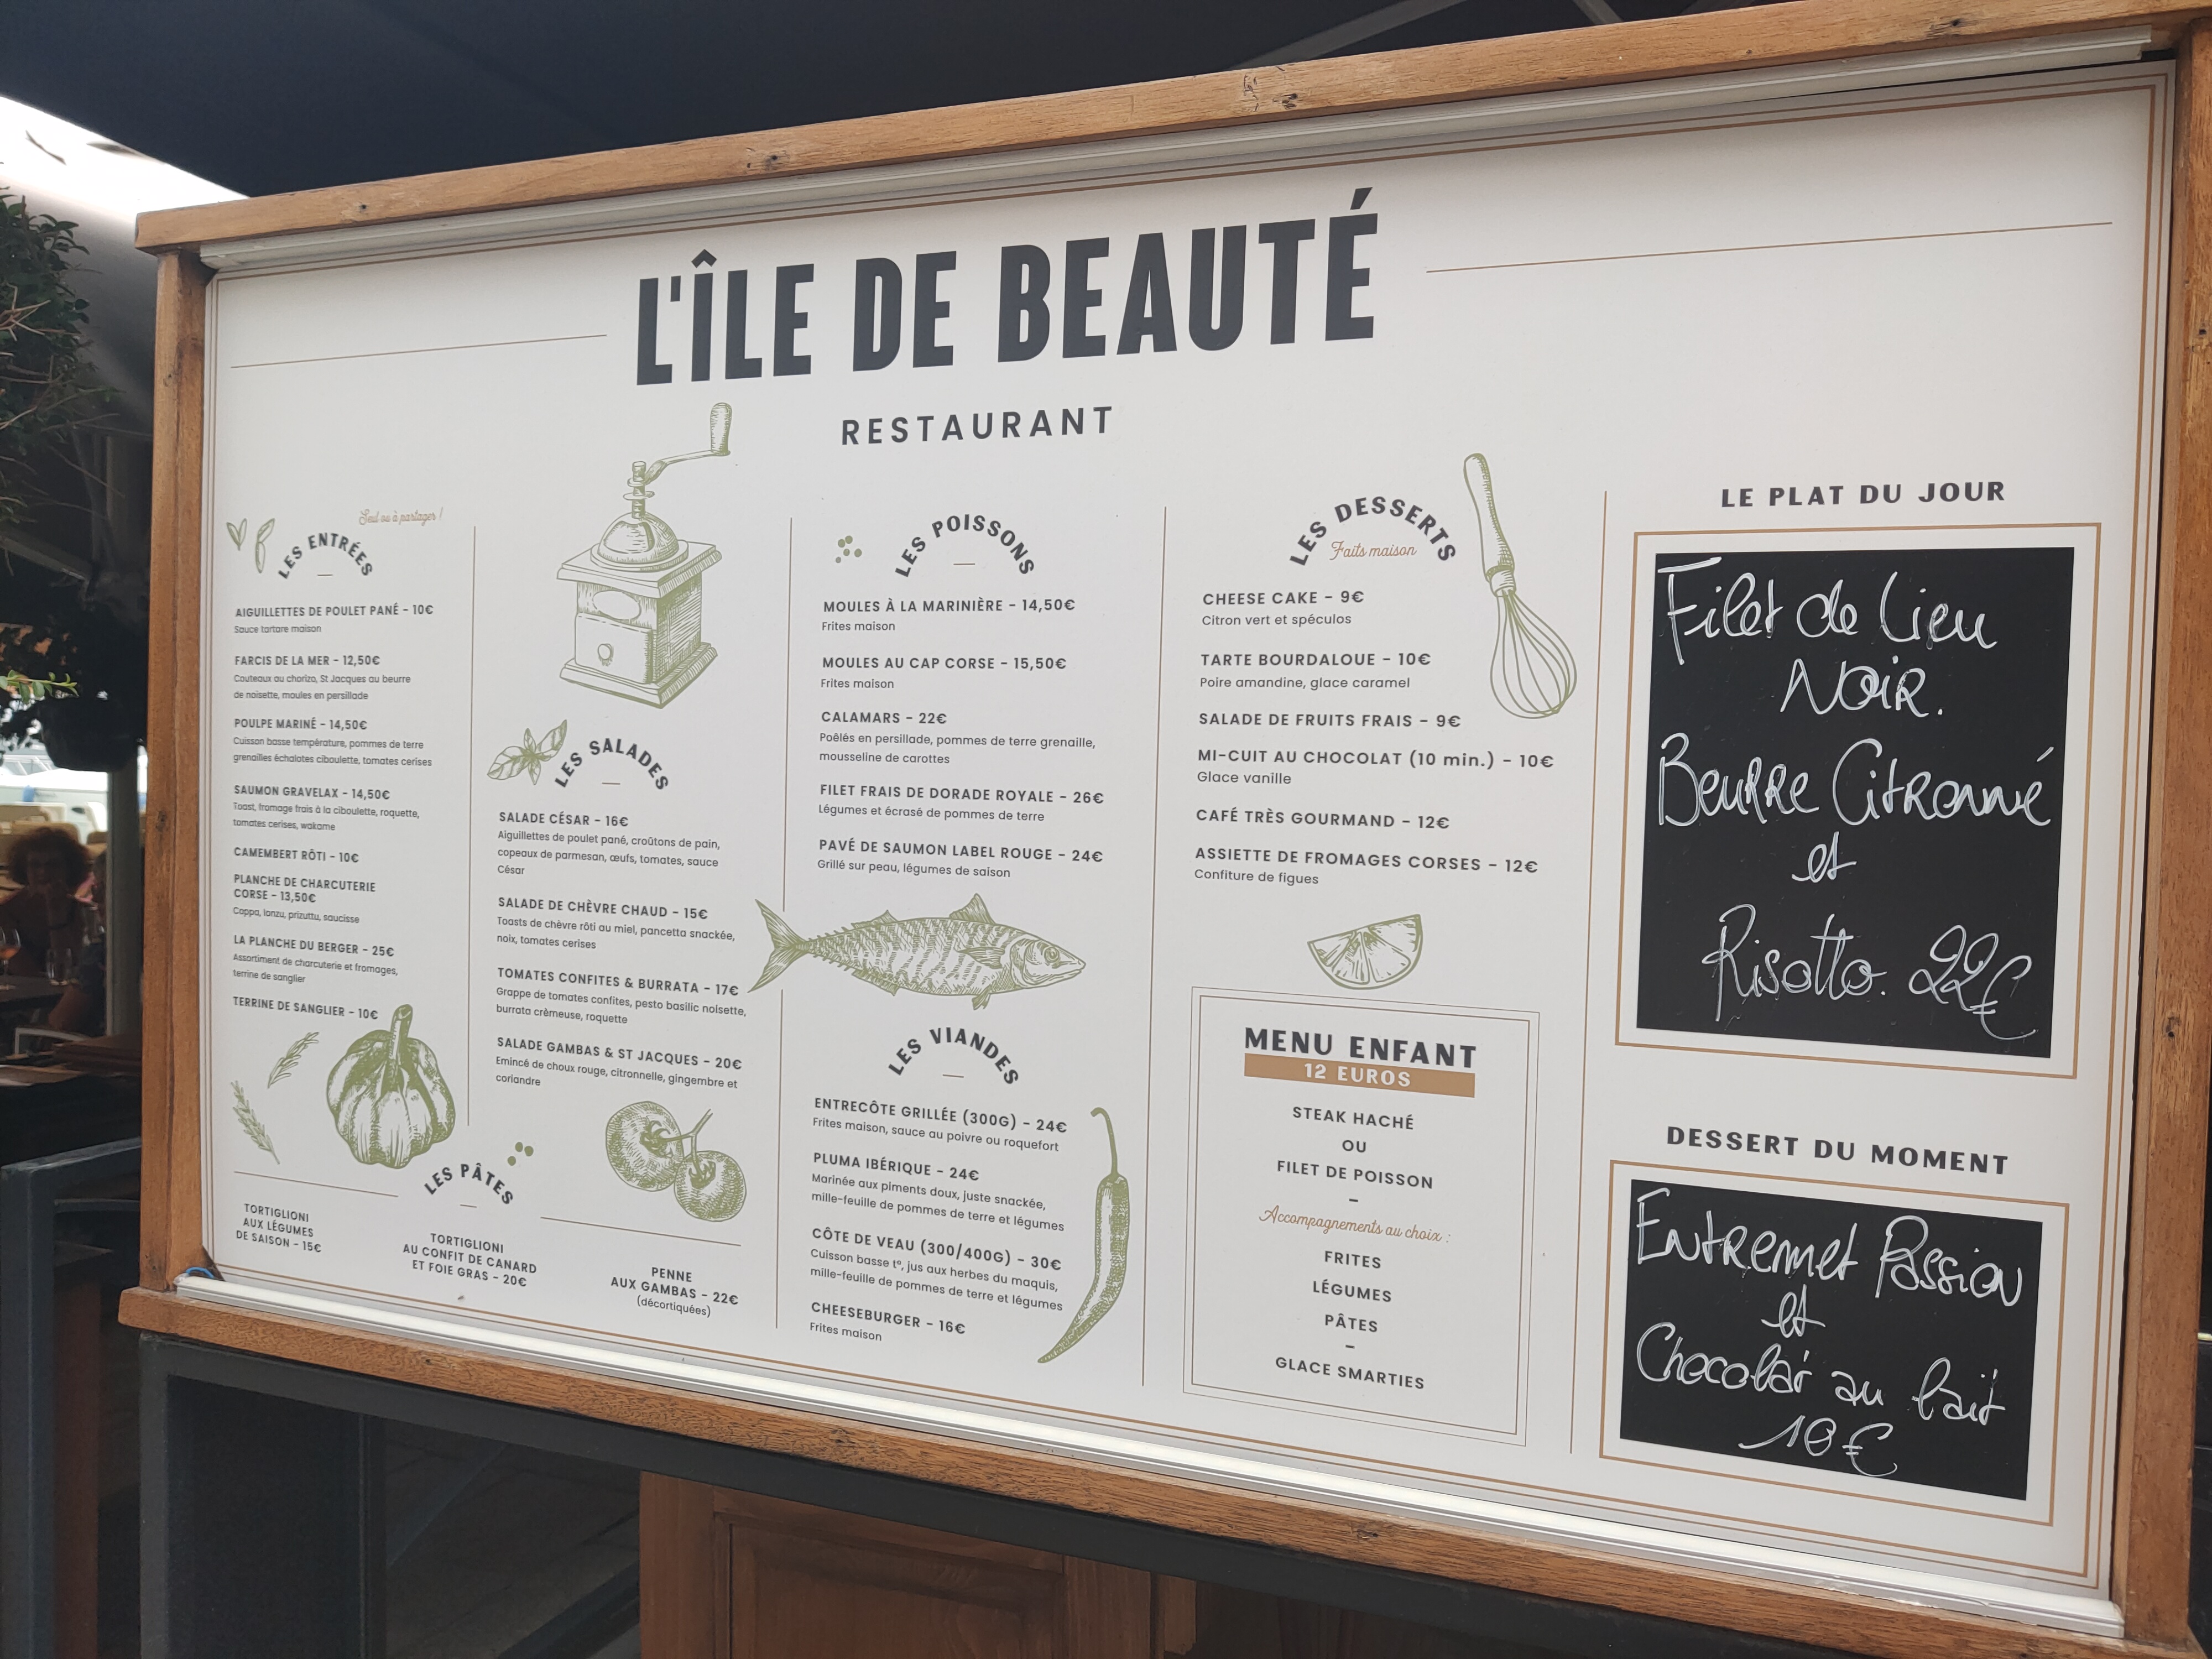 L'ÎLE DE BEAUTÉ
RESTAURANT
Seul ou à partager !
LES ENTRÉES
AIGUILLETTES DE POULET PANÉ - 10€
Sauce tartare maison
FARCIS DE LA MER - 12,50€
Couteaux au chorizo, St Jacques au beurre
de noisette, moules en persillade
POULPE MARINÉ - 14,50€
Cuisson basse température, pommes de terre
grenailles échalotes ciboulette, tomates cerises
SAUMON GRAVELAX - 14,50€
Toast, fromage frais à la ciboulette, roquette,
tomates cerises, wakame
CAMEMBERT RÔTI - 10€
PLANCHE DE CHARCUTERIE
CORSE - 13,50€
Coppa, lonzu, prizuttu, saucisse
LA PLANCHE DU BERGER - 25€
Assortiment de charcuterie et fromages,
terrine de sanglier
TERRINE DE SANGLIER - 10€
LES SALADES
SALADE CÉSAR - 16€
Aiguillettes de poulet pané, croûtons de pain,
copeaux de parmesan, œufs, tomates, sauce
César
SALADE DE CHÈVRE CHAUD - 15€
Toasts de chèvre rôti au miel, pancetta snackée,
noix, tomates cerises
TOMATES CONFITES & BURRATA - 17€
Grappe de tomates confites, pesto basilic noisette,
burrata crèmeuse, roquette
SALADE GAMBAS & ST JACQUES - 20€
Emincé de choux rouge, citronnelle, gingembre et
coriandre
LES PÂTES
TORTIGLIONI
AUX LÉGUMES
DE SAISON - 15€
TORTIGLIONI
AU CONFIT DE CANARD
ET FOIE GRAS - 20€
PENNE
AUX GAMBAS - 22€
(décortiquées)
LES POISSONS
MOULES À LA MARINIÈRE - 14,50€
Frites maison
MOULES AU CAP CORSE - 15,50€
Frites maison
CALAMARS - 22€
Poêlés en persillade, pommes de terre grenaille,
mousseline de carottes
FILET FRAIS DE DORADE ROYALE - 26€
Légumes et écrasé de pommes de terre
PAVÉ DE SAUMON LABEL ROUGE - 24€
Grillé sur peau, légumes de saison
LES VIANDES
ENTRECÔTE GRILLÉE (300G) - 24€
Frites maison, sauce au poivre ou roquefort
PLUMA IBÉRIQUE - 24€
Marinée aux piments doux, juste snackée,
mille-feuille de pommes de terre et légumes
CÔTE DE VEAU (300/400G) - 30€
Cuisson basse t°, jus aux herbes du maquis,
mille-feuille de pommes de terre et légumes
CHEESEBURGER - 16€
Frites maison
LES DESSERTS
Faits maison
CHEESE CAKE - 9€
Citron vert et spéculos
TARTE BOURDALOUE - 10€
Poire amandine, glace caramel
SALADE DE FRUITS FRAIS - 9€
MI-CUIT AU CHOCOLAT (10 min.) - 10€
Glace vanille
CAFÉ TRÈS GOURMAND - 12€
ASSIETTE DE FROMAGES CORSES - 12€
Confiture de figues
MENU ENFANT
12 EUROS
STEAK HACHÉ
OU
FILET DE POISSON
-
Accompagnements au choix :
FRITES
LÉGUMES
PÂTES
-
GLACE SMARTIES
LE PLAT DU JOUR
Filet de Lieu
NOIR.
Beurre Citronné
et
Risotto. 22€
DESSERT DU MOMENT
Entremet Passion
et
Chocolat au lait
10€